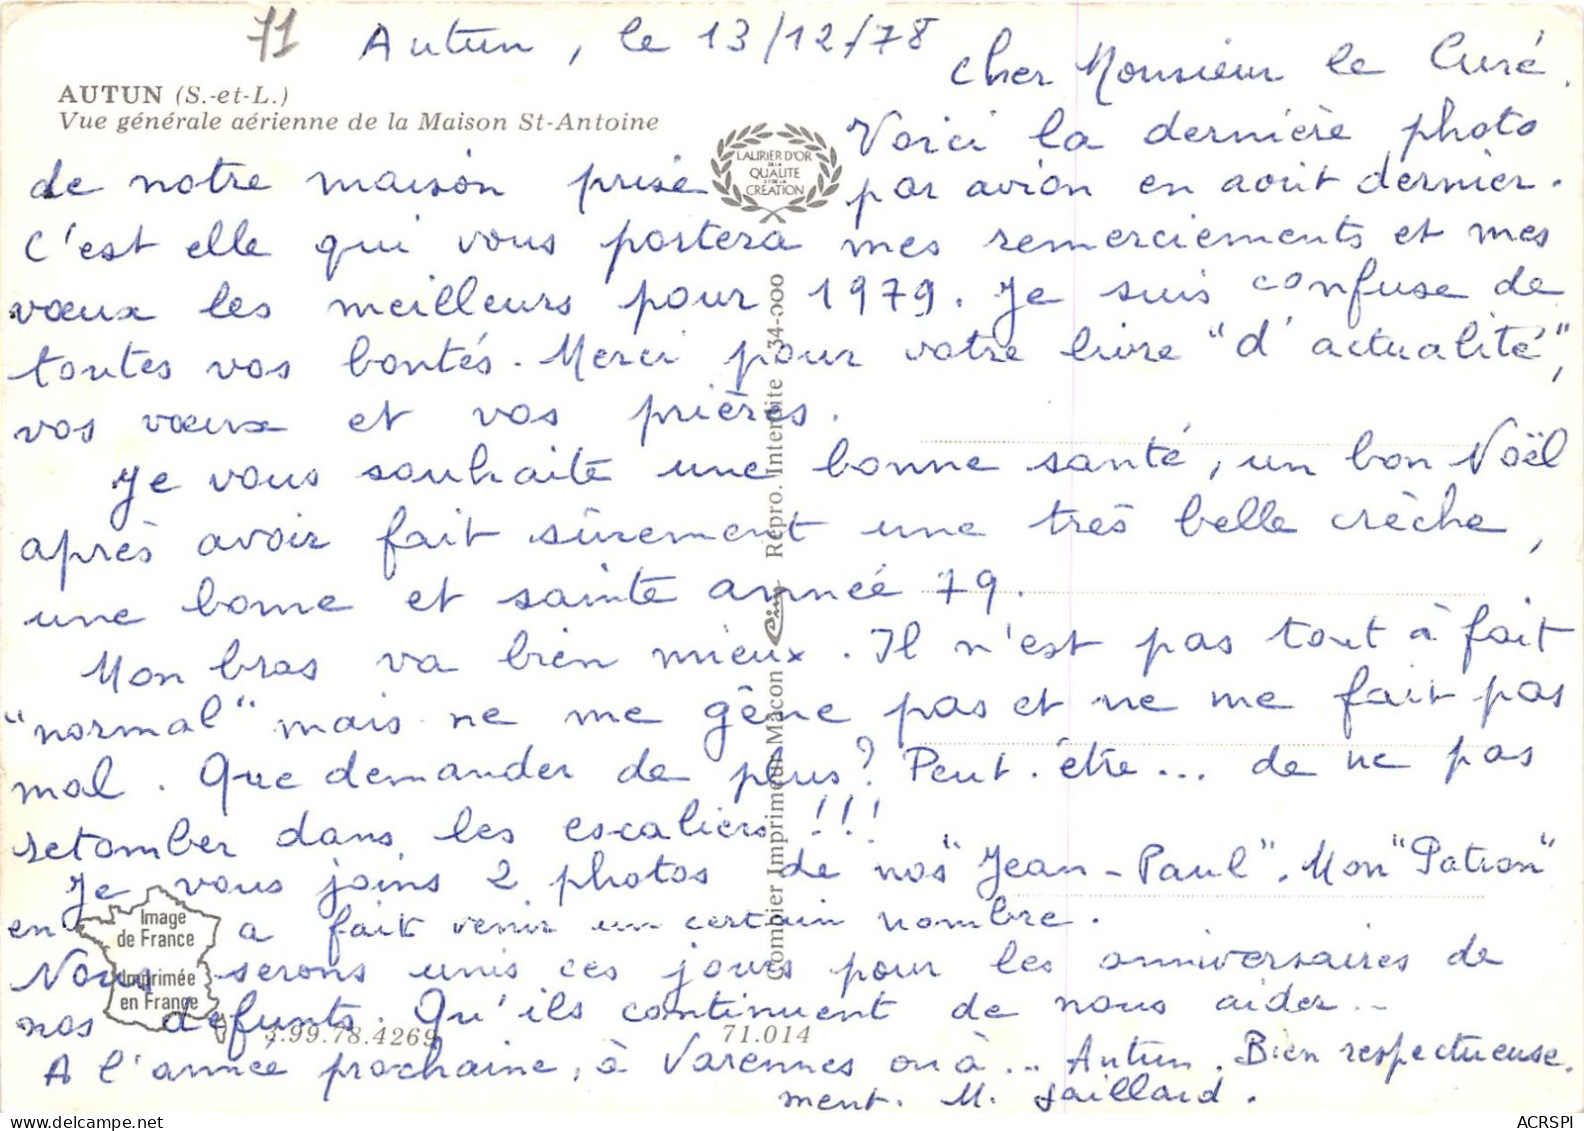 71
Autun, le 13/12/78
AUTUN (S.-et-L.)
Vue générale aérienne de la Maison St-Antoine
LAURIER D'OR
DE LA
QUALITE
ET DE LA
CREATION
Cher Monsieur le Curé.
Voici la dernière photo
de notre maison prise par avion en août dernier.
C'est elle qui vous portera mes remerciements et mes
vœux les meilleurs pour 1979. Je suis confuse de
toutes vos bontés. Merci pour votre livre "d'actualité",
vos vœux et vos prières.
Je vous souhaite une bonne santé, un bon Noël
après avoir fait sûrement une très belle crèche,
une bonne et sainte année 79.
Mon bras va bien mieux. Il n'est pas tout à fait
"normal" mais ne me gêne pas et ne me fait pas
mal. Que demander de plus? Peut-être... de ne pas
retomber dans les escaliers!!!
Je vous joins 2 photos de nos "Jean-Paul". Mon "Patron"
en a fait venir un certain nombre.
Nous serons unis ces jours pour les anniversaires de
nos défunts. Qu'ils continuent de nous aider...
A l'année prochaine, à Varennes ou à... Autun. Bien respectueuse-
ment. M. Gaillard.
Combier Imprimeur Macon Cim Repro. Interdite 34-000
Image
de France
Imprimée
en France
3.99.78.4269
71.014
ACRSPI